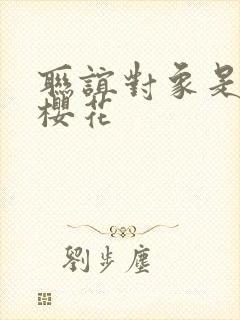 聯誼對象是
櫻花
劉步塵